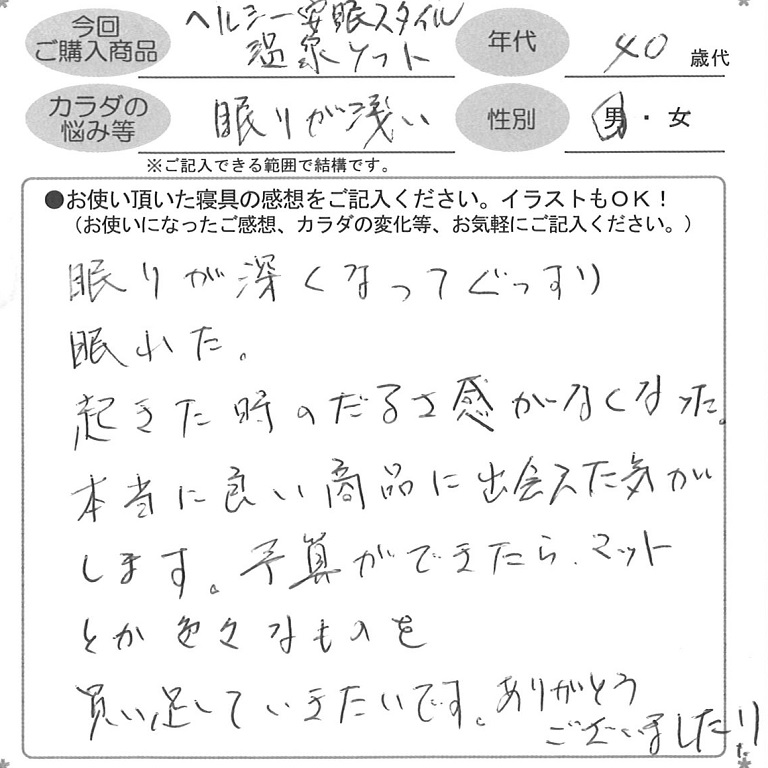 今回
ご購入商品
ヘルシー安眠スタイル
温泉ソフト
年代
40 歳代
カラダの
悩み等
眠りが浅い
性別
男・女
※ご記入できる範囲で結構です。
●お使い頂いた寝具の感想をご記入ください。イラストもOK！
（お使いになったご感想、カラダの変化等、お気軽にご記入ください。）
眠りが深くなってぐっすり
眠れた。
起きた時のだるさ感がなくなった。
本当に良い商品に出会えた気が
します。予算ができたら、マット
とか色々なものを
買い足していきたいです。ありがとう
ございました!!